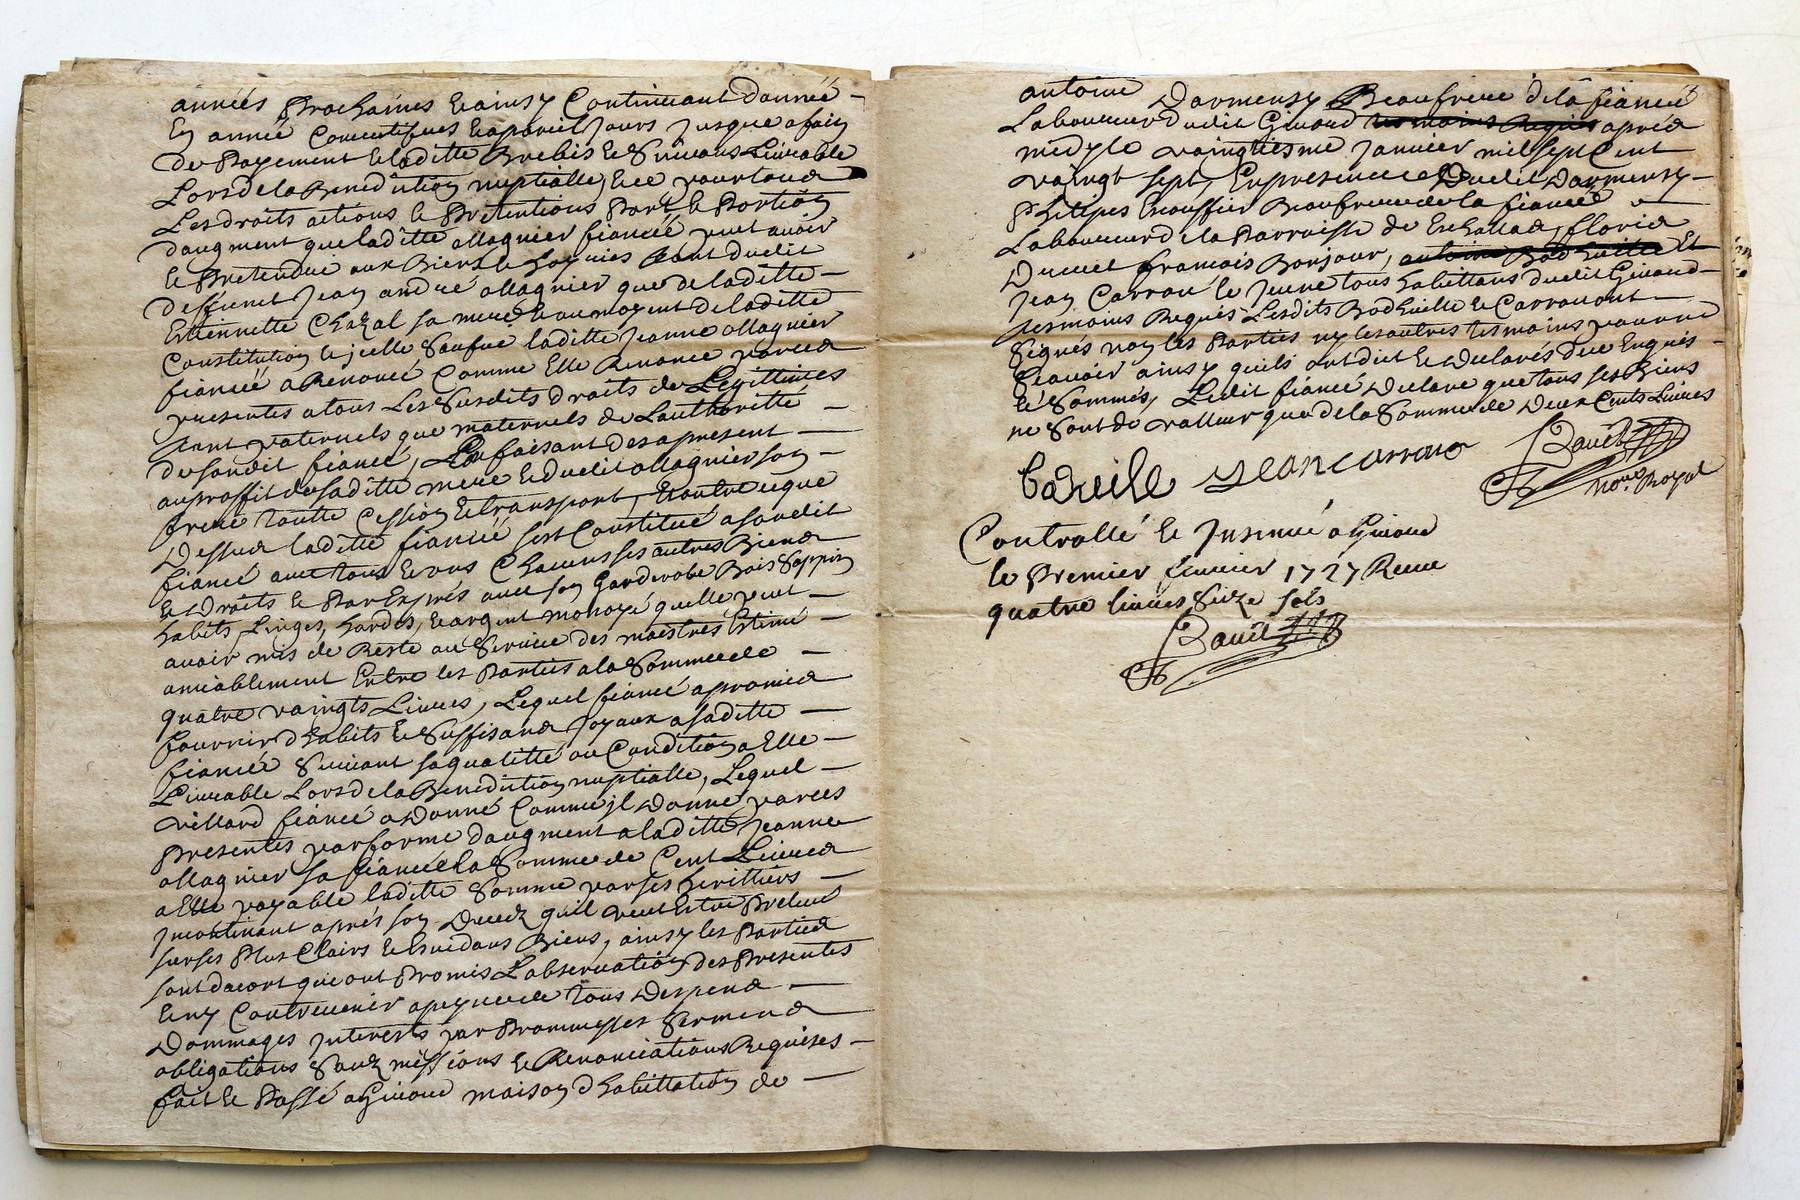 années Prochaines & ainsy Continuant dannée
En année Consecutifues & apareil Jours Jusque a fain
de Payement & laditte Brebis & Liurable
Lors de la Benediction nuptialle, & ce pour tous
Les droits actions & Pretentions Part & Portion
daugment que laditte Magnier fianceé peut avoir
& Pretendre aux Biens & hoyries tant dudit
deffunct Jean andré Magnier que de laditte
Ettiennette Chazal sa mere & aumoyent de laditte
Constitution & jcelle laditte Jeanne Magnier
fianceé a Renoncé Comme Elle Renonce par ces
presentes a tous Les Susdits droits de Legittimes
tant paternels que maternels de Lauthoritte
de sondit fiancé, En faisant des apresent
auproffit de saditte mere & dudit Magnier son
frere toutte Cession & transport, & outre ce que
Dessus laditte fianceé sest Constitué a sondit
fiancé avec tous & vns Chacuns ses autres Biens
& Droits & Par Exprés avec son Garderobe Bois Sappin
habits, Linges, hardes, & argent monoyé quelle peut
avoir mis de Reste au Service des maestres Estimé
amiablement Entre les Parties a la Somme de
quatre vaingts Liures, Lequel fiancé a promis
fournir dhabits & Suffisans Joyaux a saditte
fianceé Suivant sa qualitté ou Condition a Elle
Liurable Lors de la Benediction nuptialle, Lequel
Villard fiancé a Donné Comme jl Donne par ces
Presentes par forme daugment a laditte Jeanne
Magnier sa fianceé la Somme de Cent Liures
a Elle payable laditte Somme par ses heritiers
Jncontinant aprés son Decez quil veut Estre Prelevé
sur ses Plus Clairs & Euidans Biens, ainsy les Parties
sont dacort qui ont Promis Lobservation des Presentes
& ny Contreuenir a peyne de tous Despens
Dommages Jnterests par Prommesses Sermens
obligations Soubzmissions & Renonciations Requises
fait & Passé a maison dhabittation de
antoine Darmensy Beaufrere de la fianceé
Laboureur dudit apres
midy le vaingtiesme Januier mil sept Cent
vaingt sept, En presence Dudit Darmensy
Philippes Beaufrere de la fianceé
Laboureur de la Parroisse de
francois Bonjour, Et
Jean Carrou le Jeune tous habittans dudit
tesmoins Requis Lesdits & Carrou ont
Signés non les Parties ny les autres tesmoins pour ne
Scauoir ainsy quils ont dit & Declarés de ce Enquis
& Sommés, Ledit fiancé Declare que tous ses Biens
ne Sont de valleur que de la Somme de Deux Cents Liures
Notre Royal
Controllé & Jnsinué a
le Premier feurier 1727 Receu
quatre liures Seize sols